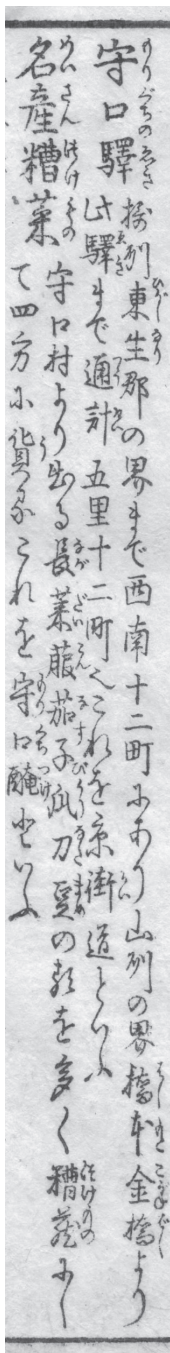 守口驛 摂州東生郡の界まで西南十二町にあり山州の界橋本金橋より
此驛まで通計五里十二町也これを京街道といふ
名産糟菜 守口村より出る長菜菔茄子瓜刀豆の類を多く糟蔵にし
て四方に貨るこれを守口醃といふ